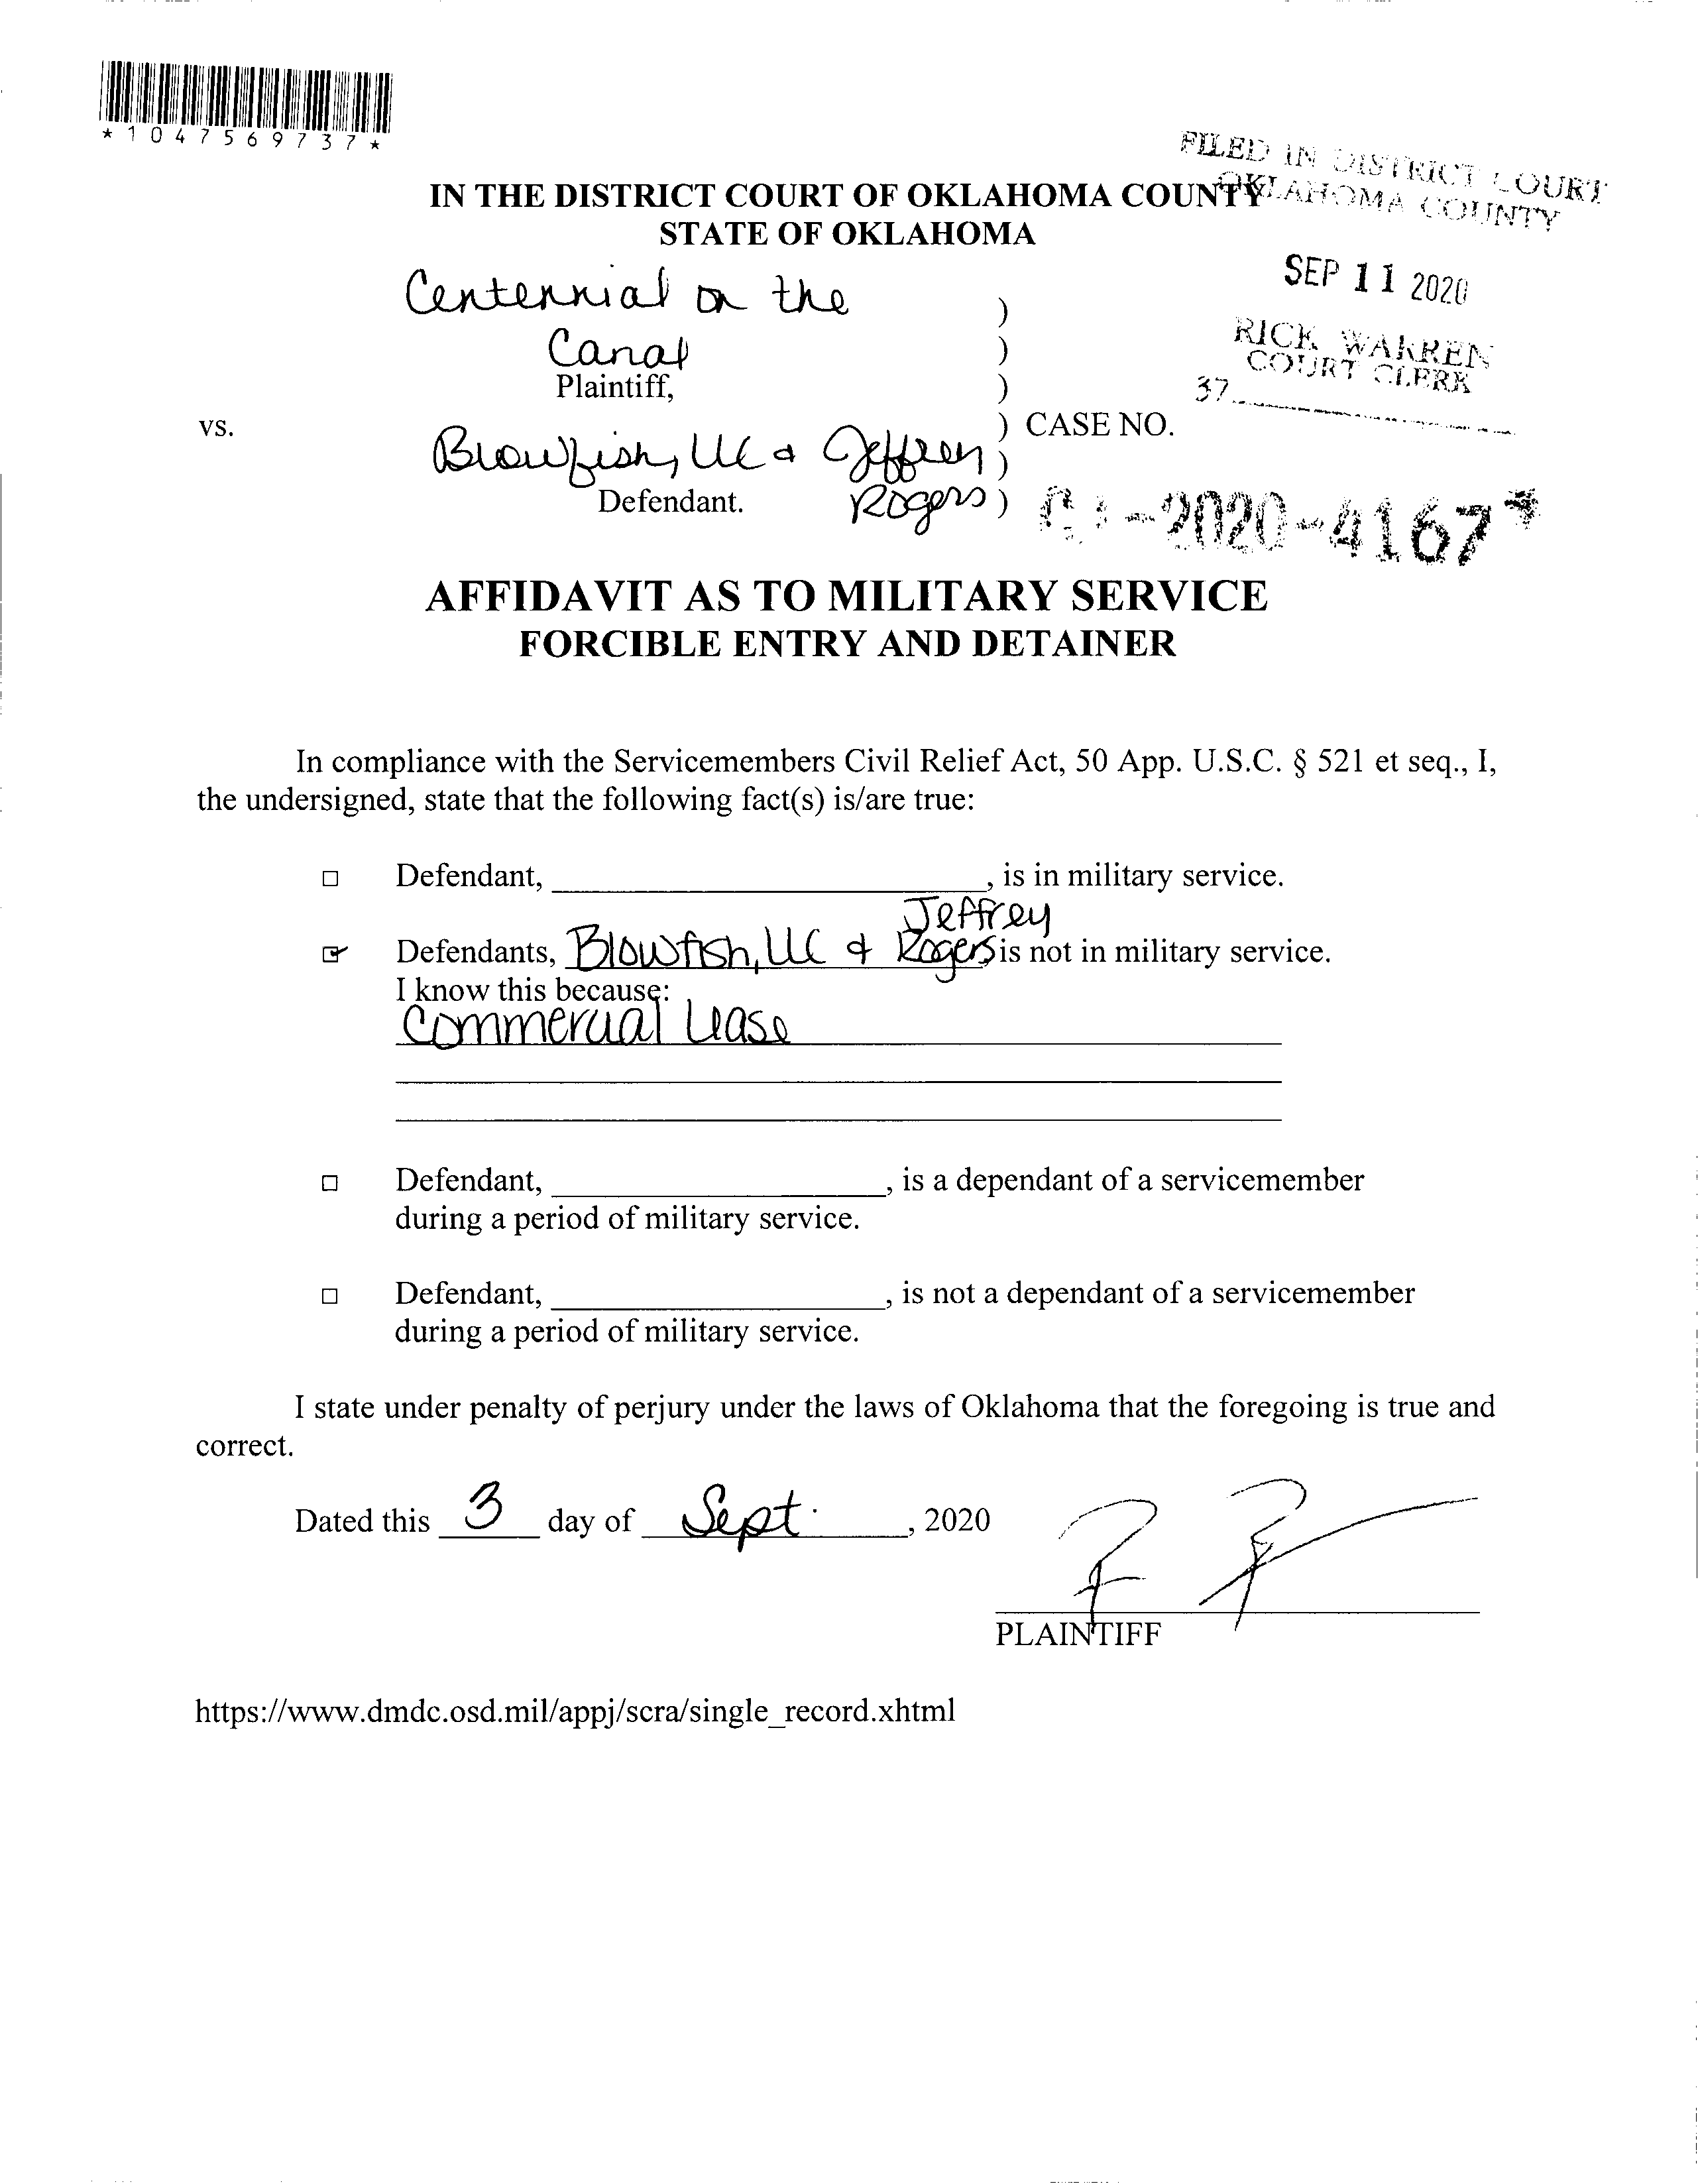 *1047569737*
FILED IN DISTRICT COURT
OKLAHOMA COUNTY
IN THE DISTRICT COURT OF OKLAHOMA COUNTY
STATE OF OKLAHOMA
SEP 11 2020
RICK WARREN
COURT CLERK
37
Centennial on the
Canal
Plaintiff,
vs.
Blowfish, LLC & Jeffrey
Rogers
Defendant.
)
)
)
)
)
)
CASE NO.
CJ-2020-4167*
AFFIDAVIT AS TO MILITARY SERVICE
FORCIBLE ENTRY AND DETAINER
In compliance with the Servicemembers Civil Relief Act, 50 App. U.S.C. § 521 et seq., I,
the undersigned, state that the following fact(s) is/are true:
□ Defendant, ____________, is in military service.
☑ Defendants, Blowfish, LLC & Jeffrey Rogers is not in military service.
I know this because:
Commercial Lease
□ Defendant, ____________, is a dependant of a servicemember
during a period of military service.
□ Defendant, ____________, is not a dependant of a servicemember
during a period of military service.
I state under penalty of perjury under the laws of Oklahoma that the foregoing is true and
correct.
Dated this 3 day of Sept. , 2020
PLAINTIFF
https://www.dmdc.osd.mil/appj/scra/single_record.xhtml